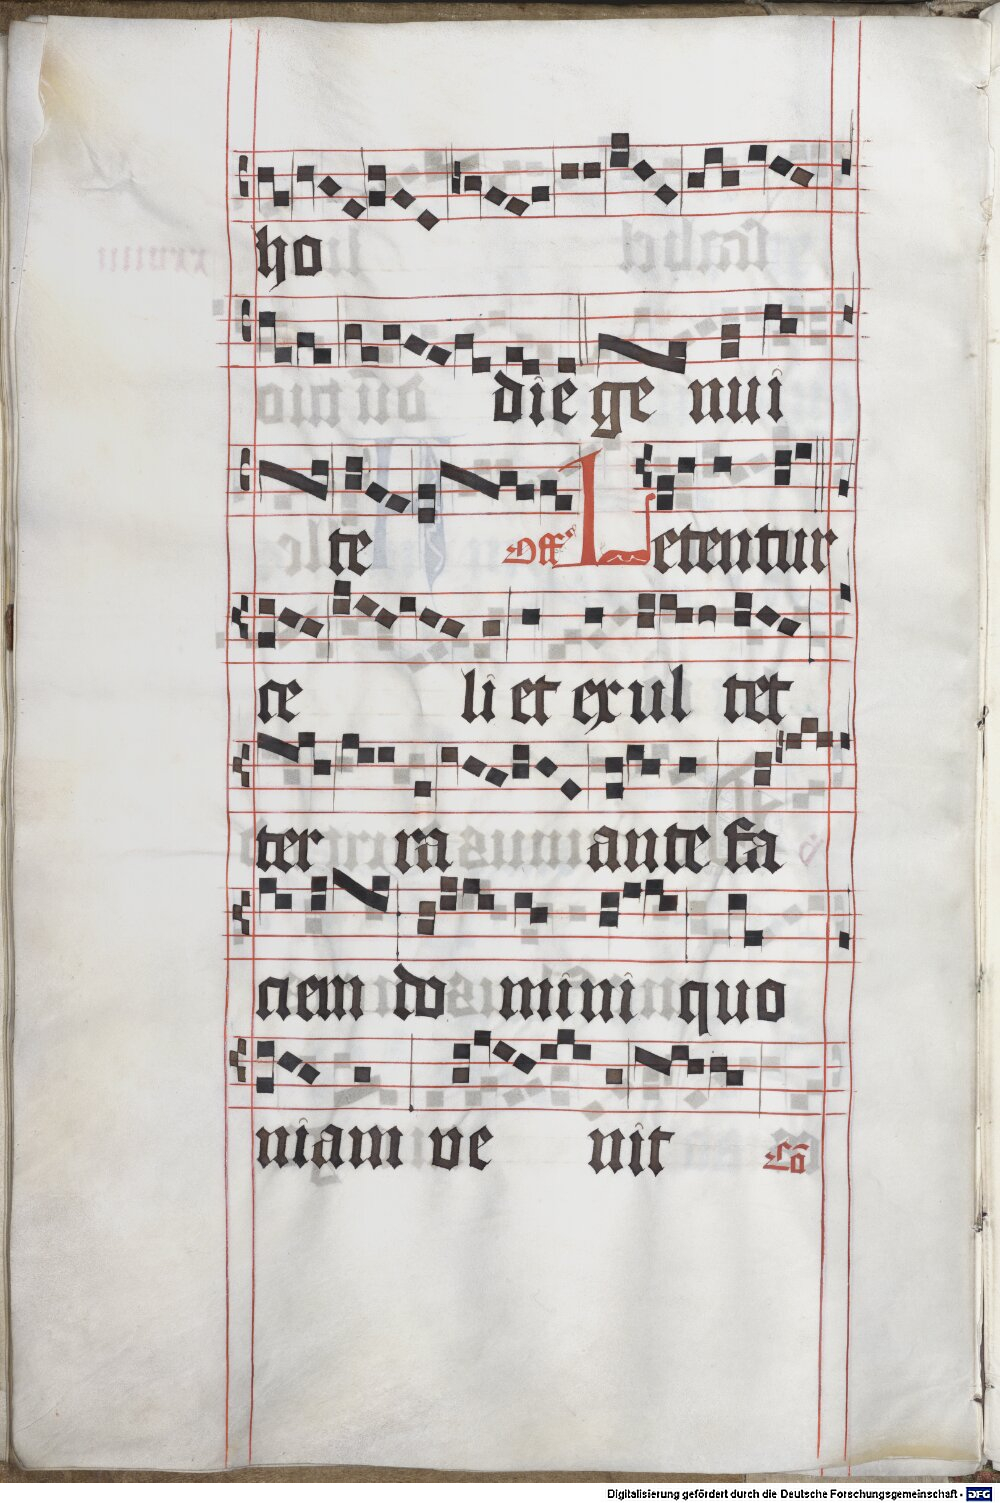 ho
die ge nui
te Off Letentur
ce li et ex ul tet
ter ra ante fa
ciem do mini quo
niam ve nit Cō
Digitalisierung gefördert durch die Deutsche Forschungsgemeinschaft - DFG